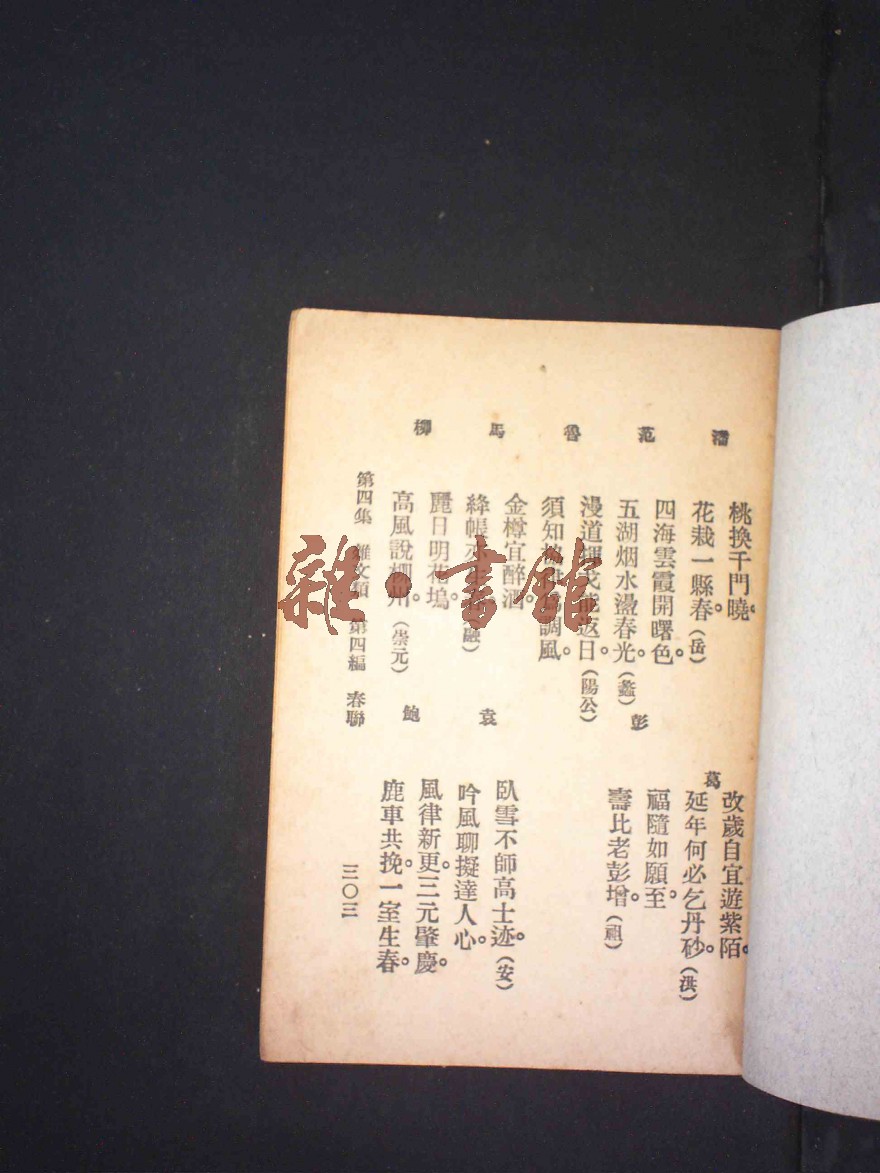 潘
桃換千門曉。
花栽一縣春。(岳)
范
四海雲霞開曙色。
五湖烟水盪春光。(蠡)
魯
漫道揮戈能返日。(陽公)
須知調風。
馬
金樽宜醉酒。
絳帳融)
柳
麗日明花塢。
高風說柳州。(崇元)
葛
改歲自宜遊紫陌。
延年何必乞丹砂。(洪)
彭
福隨如願至。
壽比老彭增。(祖)
袁
臥雪不師高士迹。(安)
吟風聊擬達人心。
鮑
風律新更。三元肇慶。
鹿車共挽。一室生春。
第四集 雜文類 第四編 春聯
三〇三
雜·書館